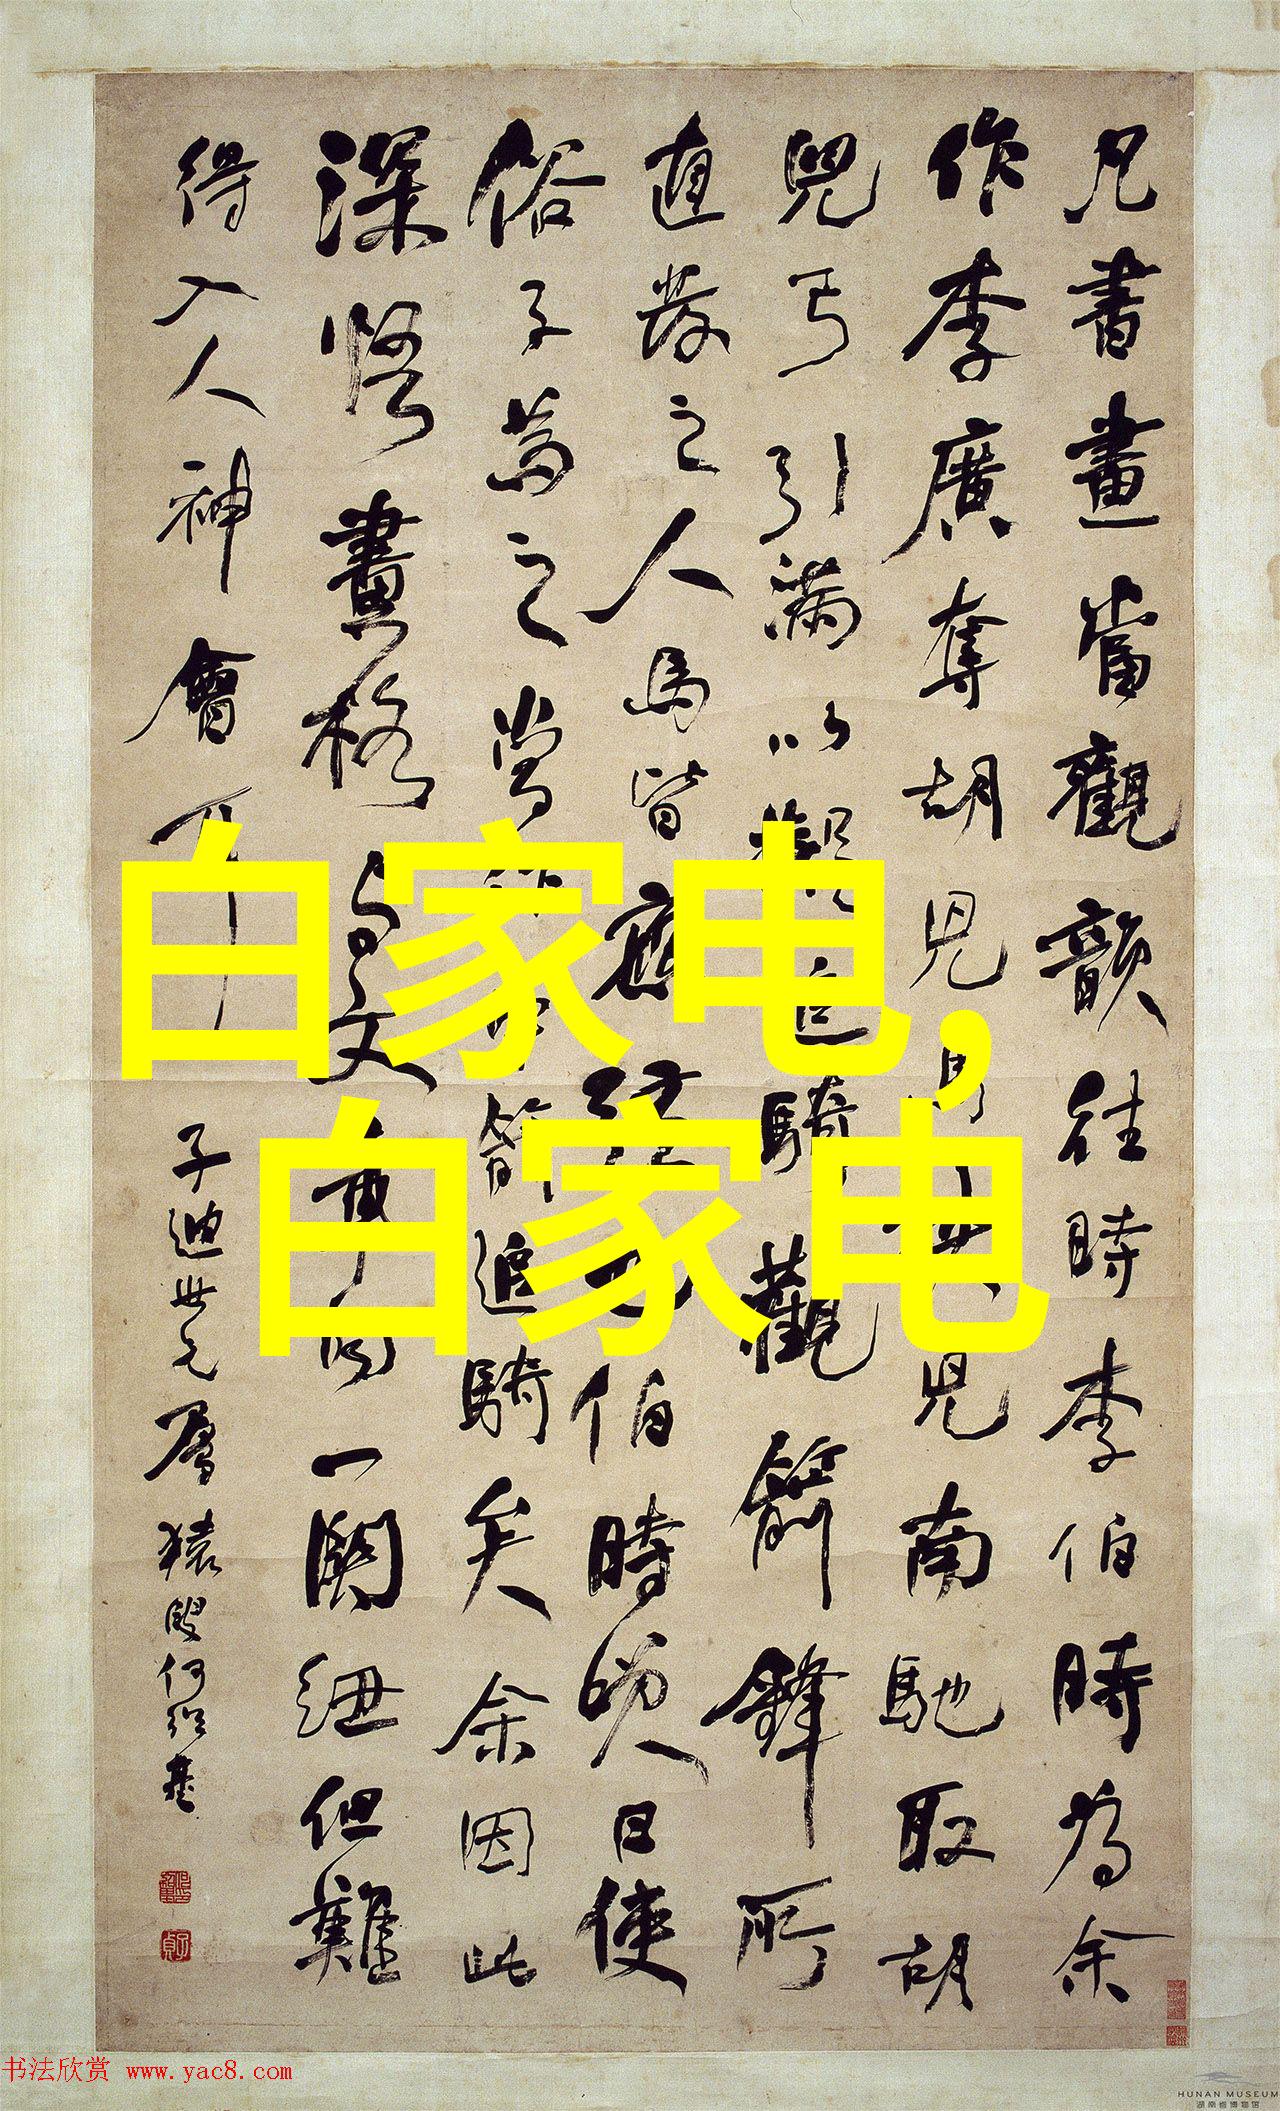 凡書畫當觀韻往時李伯時為余
作李廣奪胡兒馬挾兒南馳取胡
兒弓引滿以擬追騎觀箭鋒所
直發之人馬皆應弦也伯時笑曰使
俗子為之當作中箭追騎矣余因此
深悟畫格與文章同一關紐但難
得入人神會耳
子迪世兄屬 猿叟何紹基
白家电,
白家电
书法欣赏 www.yac8.com
HUNAN MUSEUM
湖南省博物馆